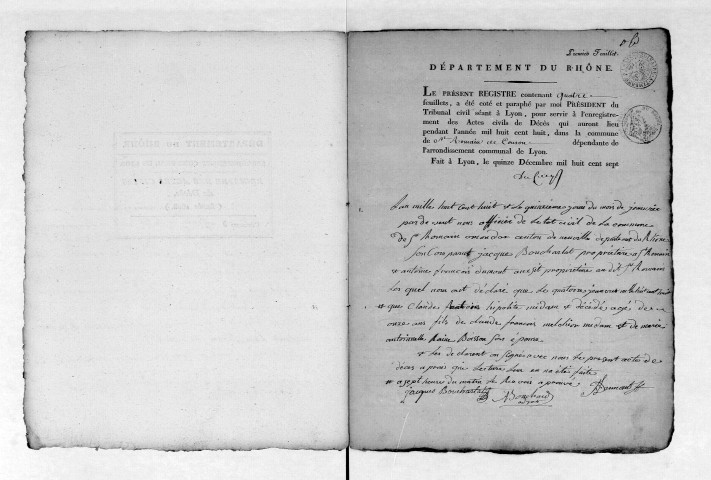 Premier Feuillet.
DÉPARTEMENT DU RHÔNE.
LE PRÉSENT REGISTRE contenant quatre
feuillets, a été coté et paraphé par moi PRÉSIDENT du
Tribunal civil séant à Lyon, pour servir à l'enregistre-
ment des Actes civils de Décès qui auront lieu
pendant l'année mil huit cent huit, dans la commune
de St Romain de Couzon dépendante de
l'arrondissement communal de Lyon.
Fait à Lyon, le quinze Décembre mil huit cent sept
L'an mille huit Cent huit & le quinzieme jour du mois de janvier
par de vant nous officier de l'etat civil de la commune
de St Romain canton de neuville departement du Rhône
sont Comparut jacque Boucharlat propriétaire a St Romain
& antoine françois dumont propriétaire au dit St Romain
les quel nous ont déclaré que le quatorze janvier mille huit cent huit
que Claude hipolite midam & décédé agé de
onze ans fils de claude françois midam & de marie
antoinette Boisson son epouse
& les declarent on signes avec nous le present acte de
décès a pres que lecture leur en na été faite
a sept heure du matin
jacques Boucharlat
Bouchard
Dumont